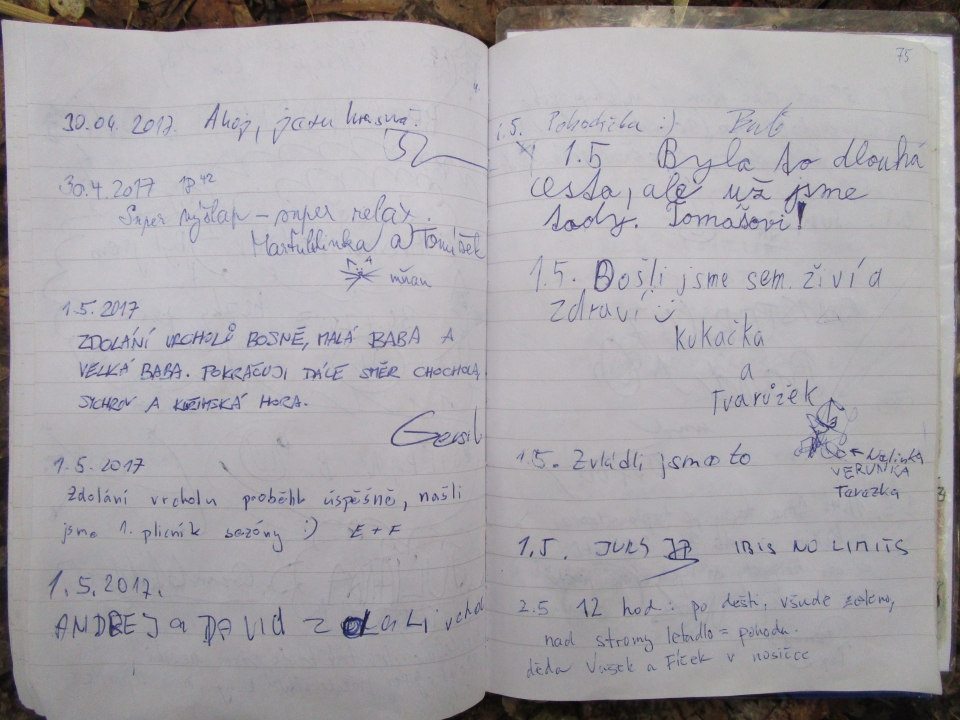 30.04. 2017. Ahoj, jsou krásná.
30.4.2017 18 42
Super výšlap – super relax.
a Tomášek
mňau
1.5.2017
ZDOLÁNÍ VRCHOLŮ BOSNĚ, MALÁ BABA A
VELKÁ BABA. POKRAČUJI DÁLE SMĚR CHOCHOLA,
SYCHROV A KUŘIMSKÁ HORA.
1.5.2017
Zdolání vrcholu proběhl úspěšně, našli
jsme 1. plicník sezóny :) E + F
1.5.2017.
ANDREJ a DAVID ZDOLALI vrchol
75
1.5. Pohodička :)
1.5 Byla to dlouhá
cesta, ale už jsme
tady. Tomašovi!
1.5. Došli jsme sem. živí a
zdraví
Kukačka
a
Tvarůžek
1.5. Zvládli jsme to
VERUNKA
Terezka
1.5. IBIS NO LIMITS
2.5 12 hod: po dešti, všude zeleno,
nad stromy letadlo = pohoda.
děda Vašek a Fíček v nosičce